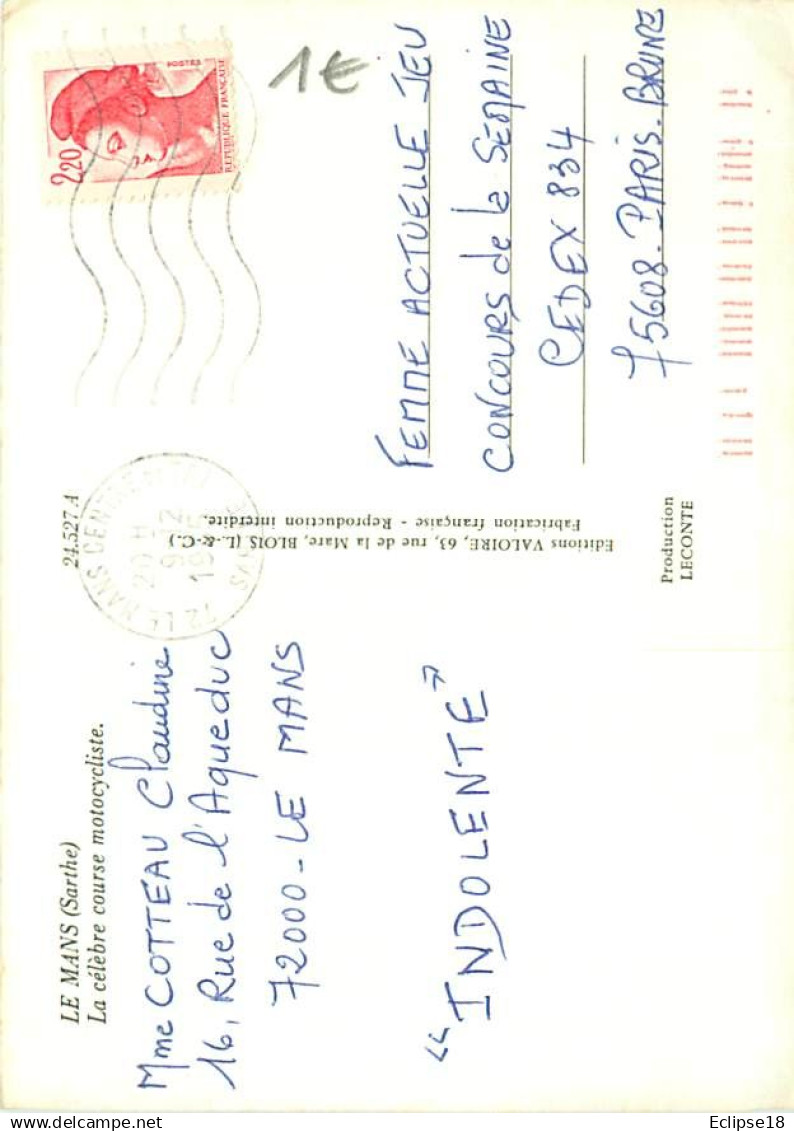 LE MANS (Sarthe)
La célèbre course motocycliste.
24.527 A
Mme COTTEAU Claudine
16, Rue de l'Aqueduc
72000 - LE MANS
"INDOLENTE"
Editions VALOIRE, 63, rue de la Mare, BLOIS (L.-&-C.)
Fabrication française - Reproduction interdite.
Production
LECONTE
72 LE MANS CENTRE
20 H
9 - 12
2,20
POSTES
REPUBLIQUE FRANÇAISE
1€
FEMME ACTUELLE JEU
CONCOURS de la SEMAINE
CEDEX 834
75608 - PARIS - BRUNE
Eclipse18